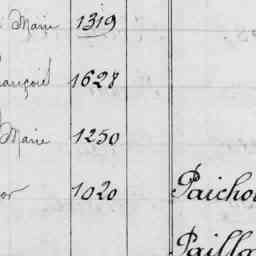 Marie 1319
ançois 1628
Marie 1250
or 1020 Paicho
Pailla